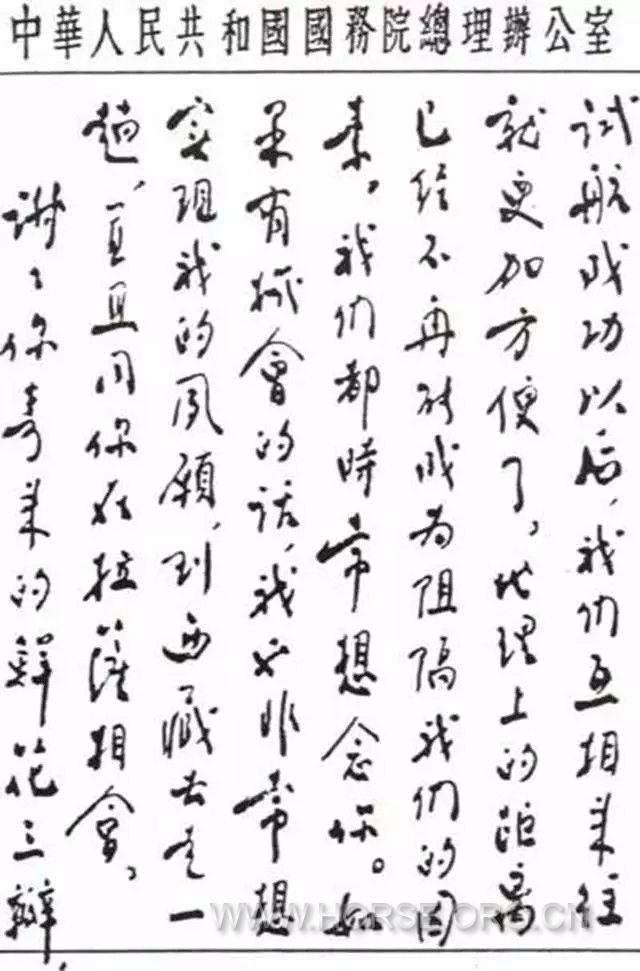 中華人民共和國國務院總理辦公室
试航成功以后，我们互相来往
就更加方便了。地理上的距离
已经不再能成为阻隔我们的因
素。我们都時常想念你。如
果有机會的话，我也非常想
实现我的夙願，到西藏去走一
趟，並且同你在拉薩相會。
谢谢你寄来的鲜花三瓣，
WWW.HORSE.ORG.CN